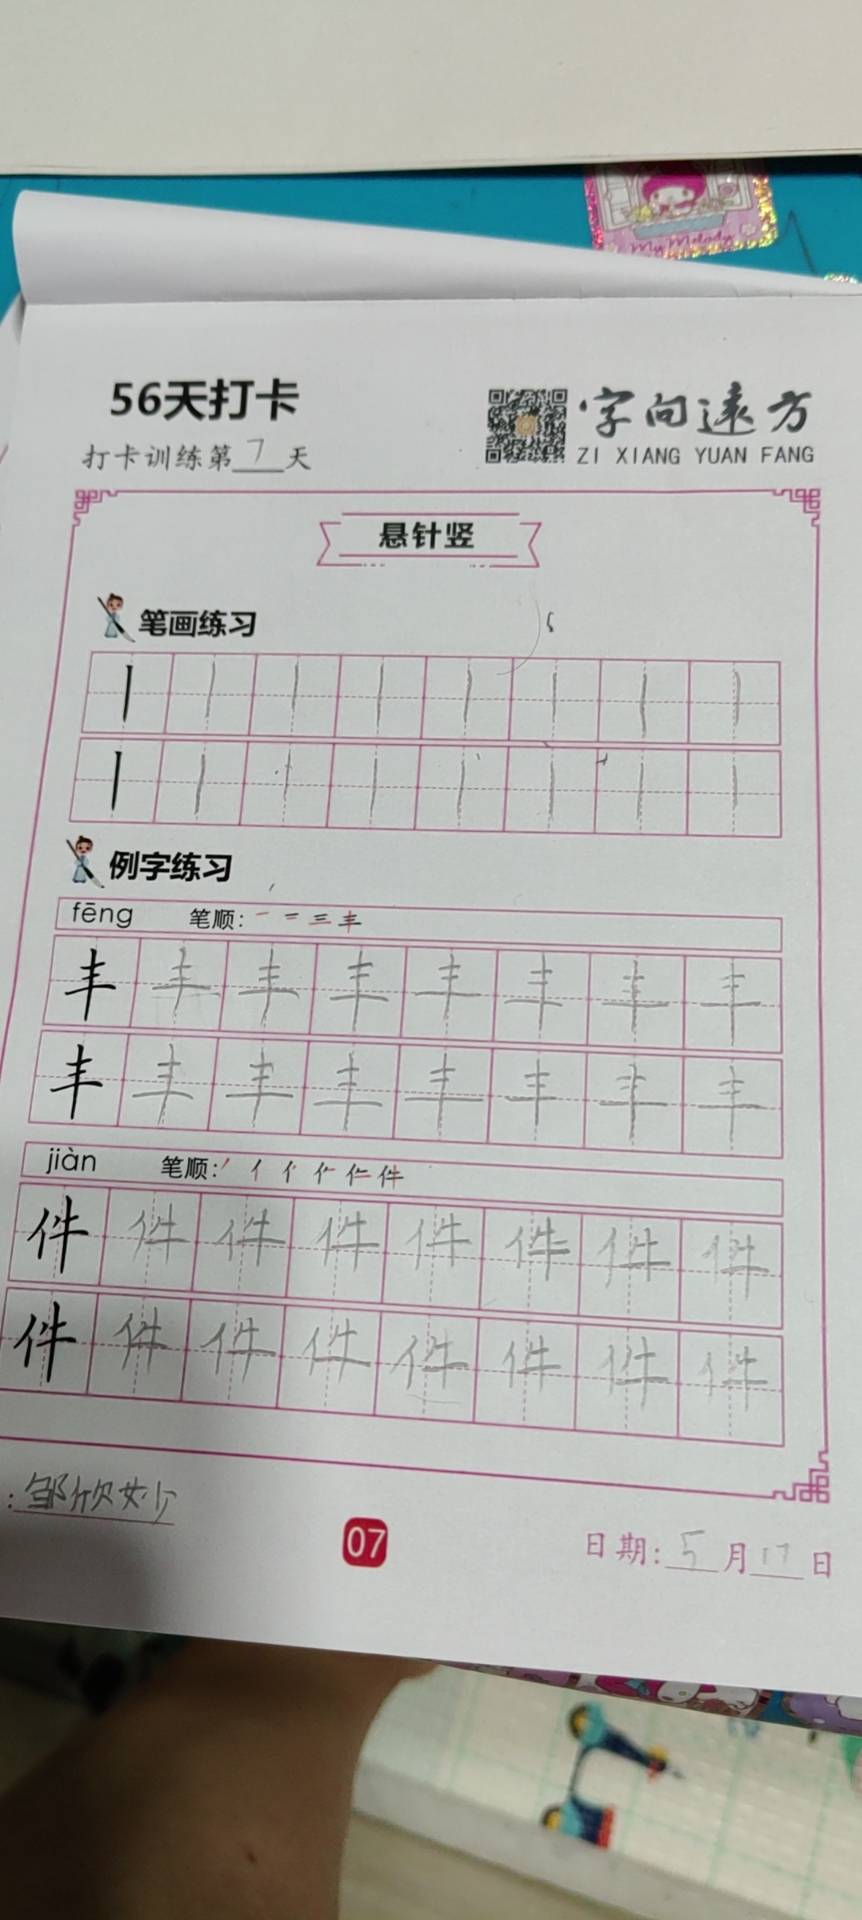 My Melody
56天打卡
字向远方
打卡训练第7天
ZI XIANG YUAN FANG
悬针竖
笔画练习
丨丨丨丨丨丨丨丨
丨丨丨丨丨丨丨丨
例字练习
fēng 笔顺: 一 二 三 丰
丰丰丰丰丰丰丰丰
丰丰丰丰丰丰丰丰
jiàn 笔顺: 丿 亻 件
件件件件件件件件
件件件件件件件件
: 邹欣妙
07
日期: 5月17日